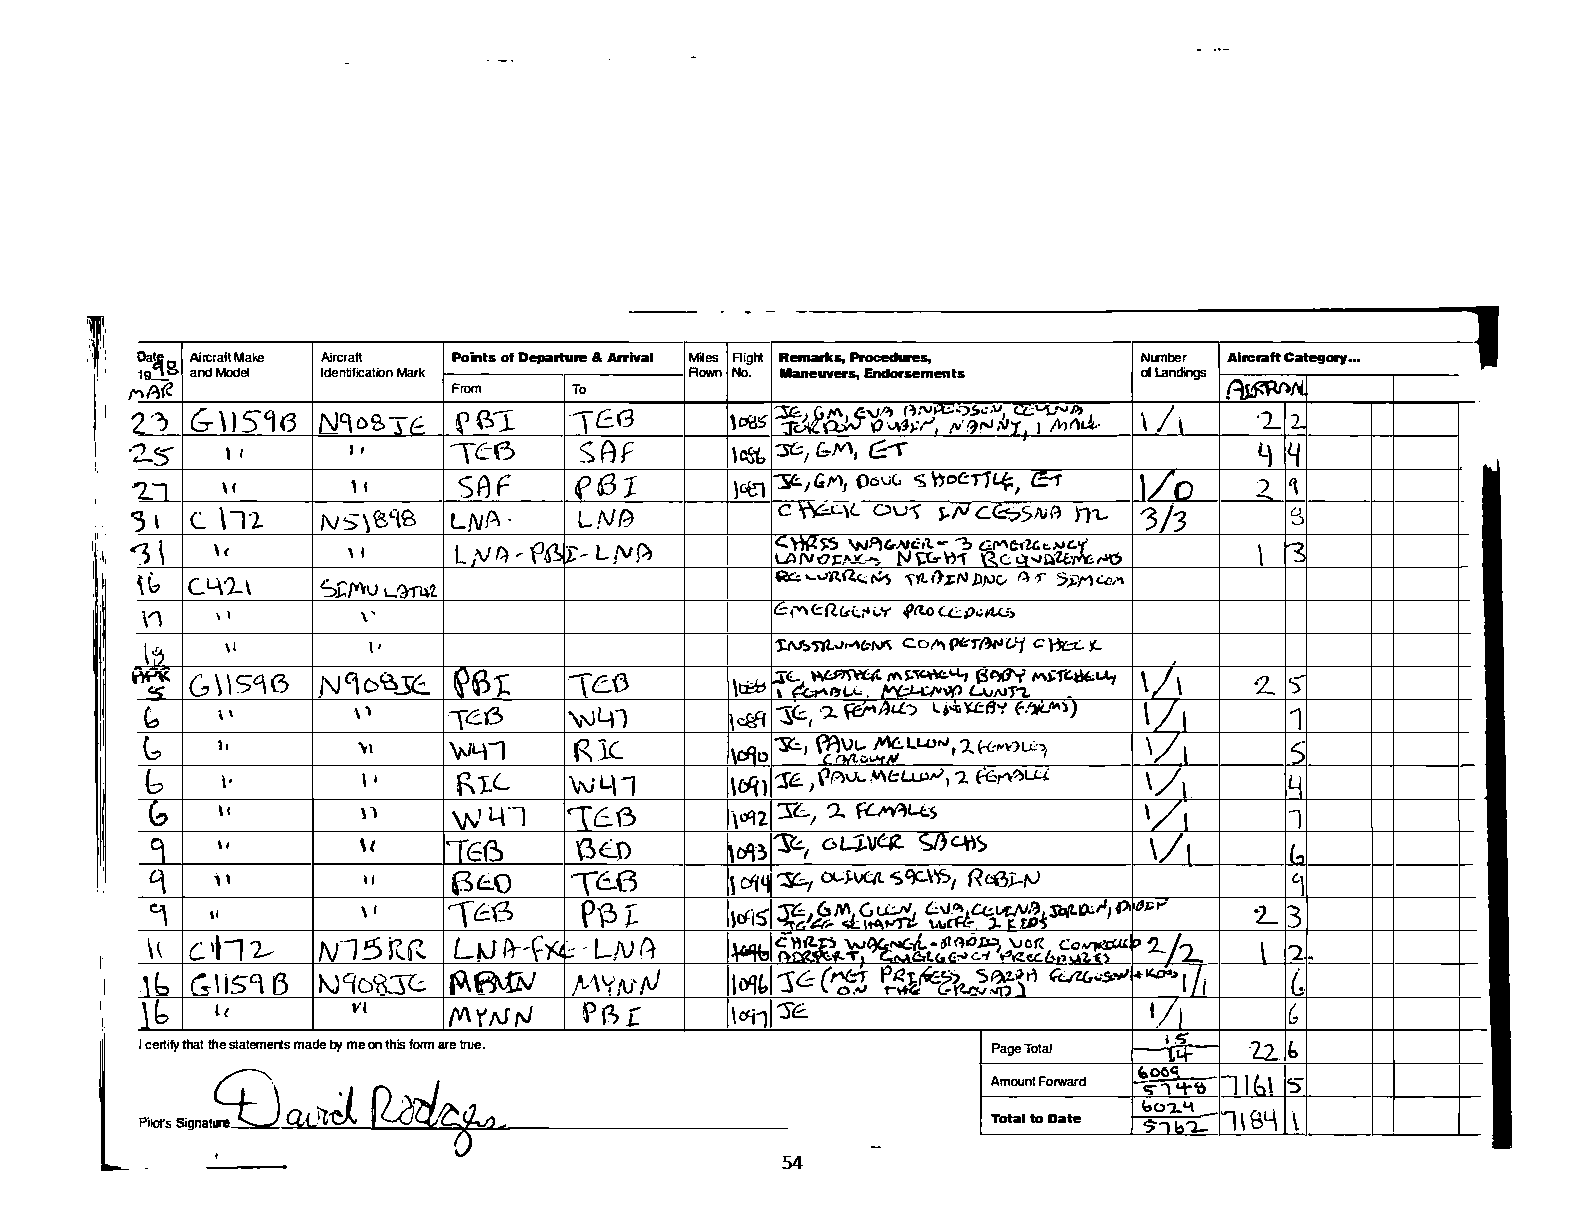 Date 1998 Aircraft Make and Model Aircraft Identification Mark Points of Departure & Arrival Miles Flown Flight No. Remarks, Procedures, Maneuvers, Endorsements Number of Landings Aircraft Category...
MAR From To
23 G1159B N908JE PBI TEB 1085 JE, GM, EVA ANDERSSON, CELINA, 1/1 2 2
DUBIN, NANNY, 1 MALE
25 " " TEB SAF 1086 JE, GM, ET 4 4
27 " " SAF PBI 1087 JE, GM, DOUG SHOETTLE, ET 1/0 2 9
31 C172 N51898 LNA LNA CHECK OUT IN CESSNA 172 3/3 8
31 " " LNA-PBI-LNA CHRIS WAGNER - 3 EMERGENCY 1 3
LANDINGS NIGHT REQUIREMENTS
16 C421 SIMULATOR RECURRENT TRAINING AT SIMCOM
17 " " EMERGENCY PROCEDURES
18 " " INSTRUMENT COMPETANCY CHECK
APR
5 G1159B N908JE PBI TEB 1088 JE, HEATHER MITCHELL, BABY MITCHELL, 1/1 2 5
1 FEMALE, MELINDA LUNTZ
6 " " TEB W47 1089 JE, 2 FEMALES 1/1 7
6 " " W47 RIC 1090 JE, PAUL MELLON, 2 FEMALES 1/1 5
CAROLYN
6 " " RIC W47 1091 JE, PAUL MELLON, 2 FEMALES 1/1 4
6 " " W47 TEB 1092 JE, 2 FEMALES 1/1 7
9 " " TEB BED 1093 JE, OLIVER SACHS 1/1 6
9 " " BED TEB 1094 JE, OLIVER SACHS, ROBIN 9
9 " " TEB PBI 1095 JE, GM, GLEN, EVA, CELINA, JORDAN, DUBIN 2 3
WIFE 2 KIDS
11 C172 N75RR LNA-FXE-LNA 1096 CHRIS WAGNER - RADIOS, VOR, CONTROLLED 2/2 1 2
AIRPORT, EMERGENCY PROCEDURES
16 G1159B N908JE MYNN 1096 JE (MET PRINCESS SARAH FERGUSON + KIDS 1/1 6
ON THE GROUND)
16 " " MYNN PBI 1097 JE 1/1 6
I certify that the statements made by me on this form are true. Page Total 15/14 22 6
Amount Forward 6009/5748 7161 5
Pilot's Signature David Rodgers Total to Date 6024/5762 7184 1
54